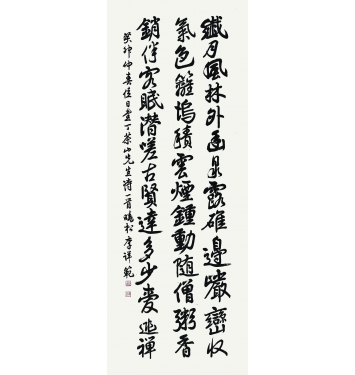 纖月風林外幽泉露碓邊巖巒收
氣色籬塢積雲煙鐘動隨僧粥香
銷伴客眠潛嗟古賢達多少愛逃禪
癸卯仲春佳日書丁茶山先生詩一首 松李詳範